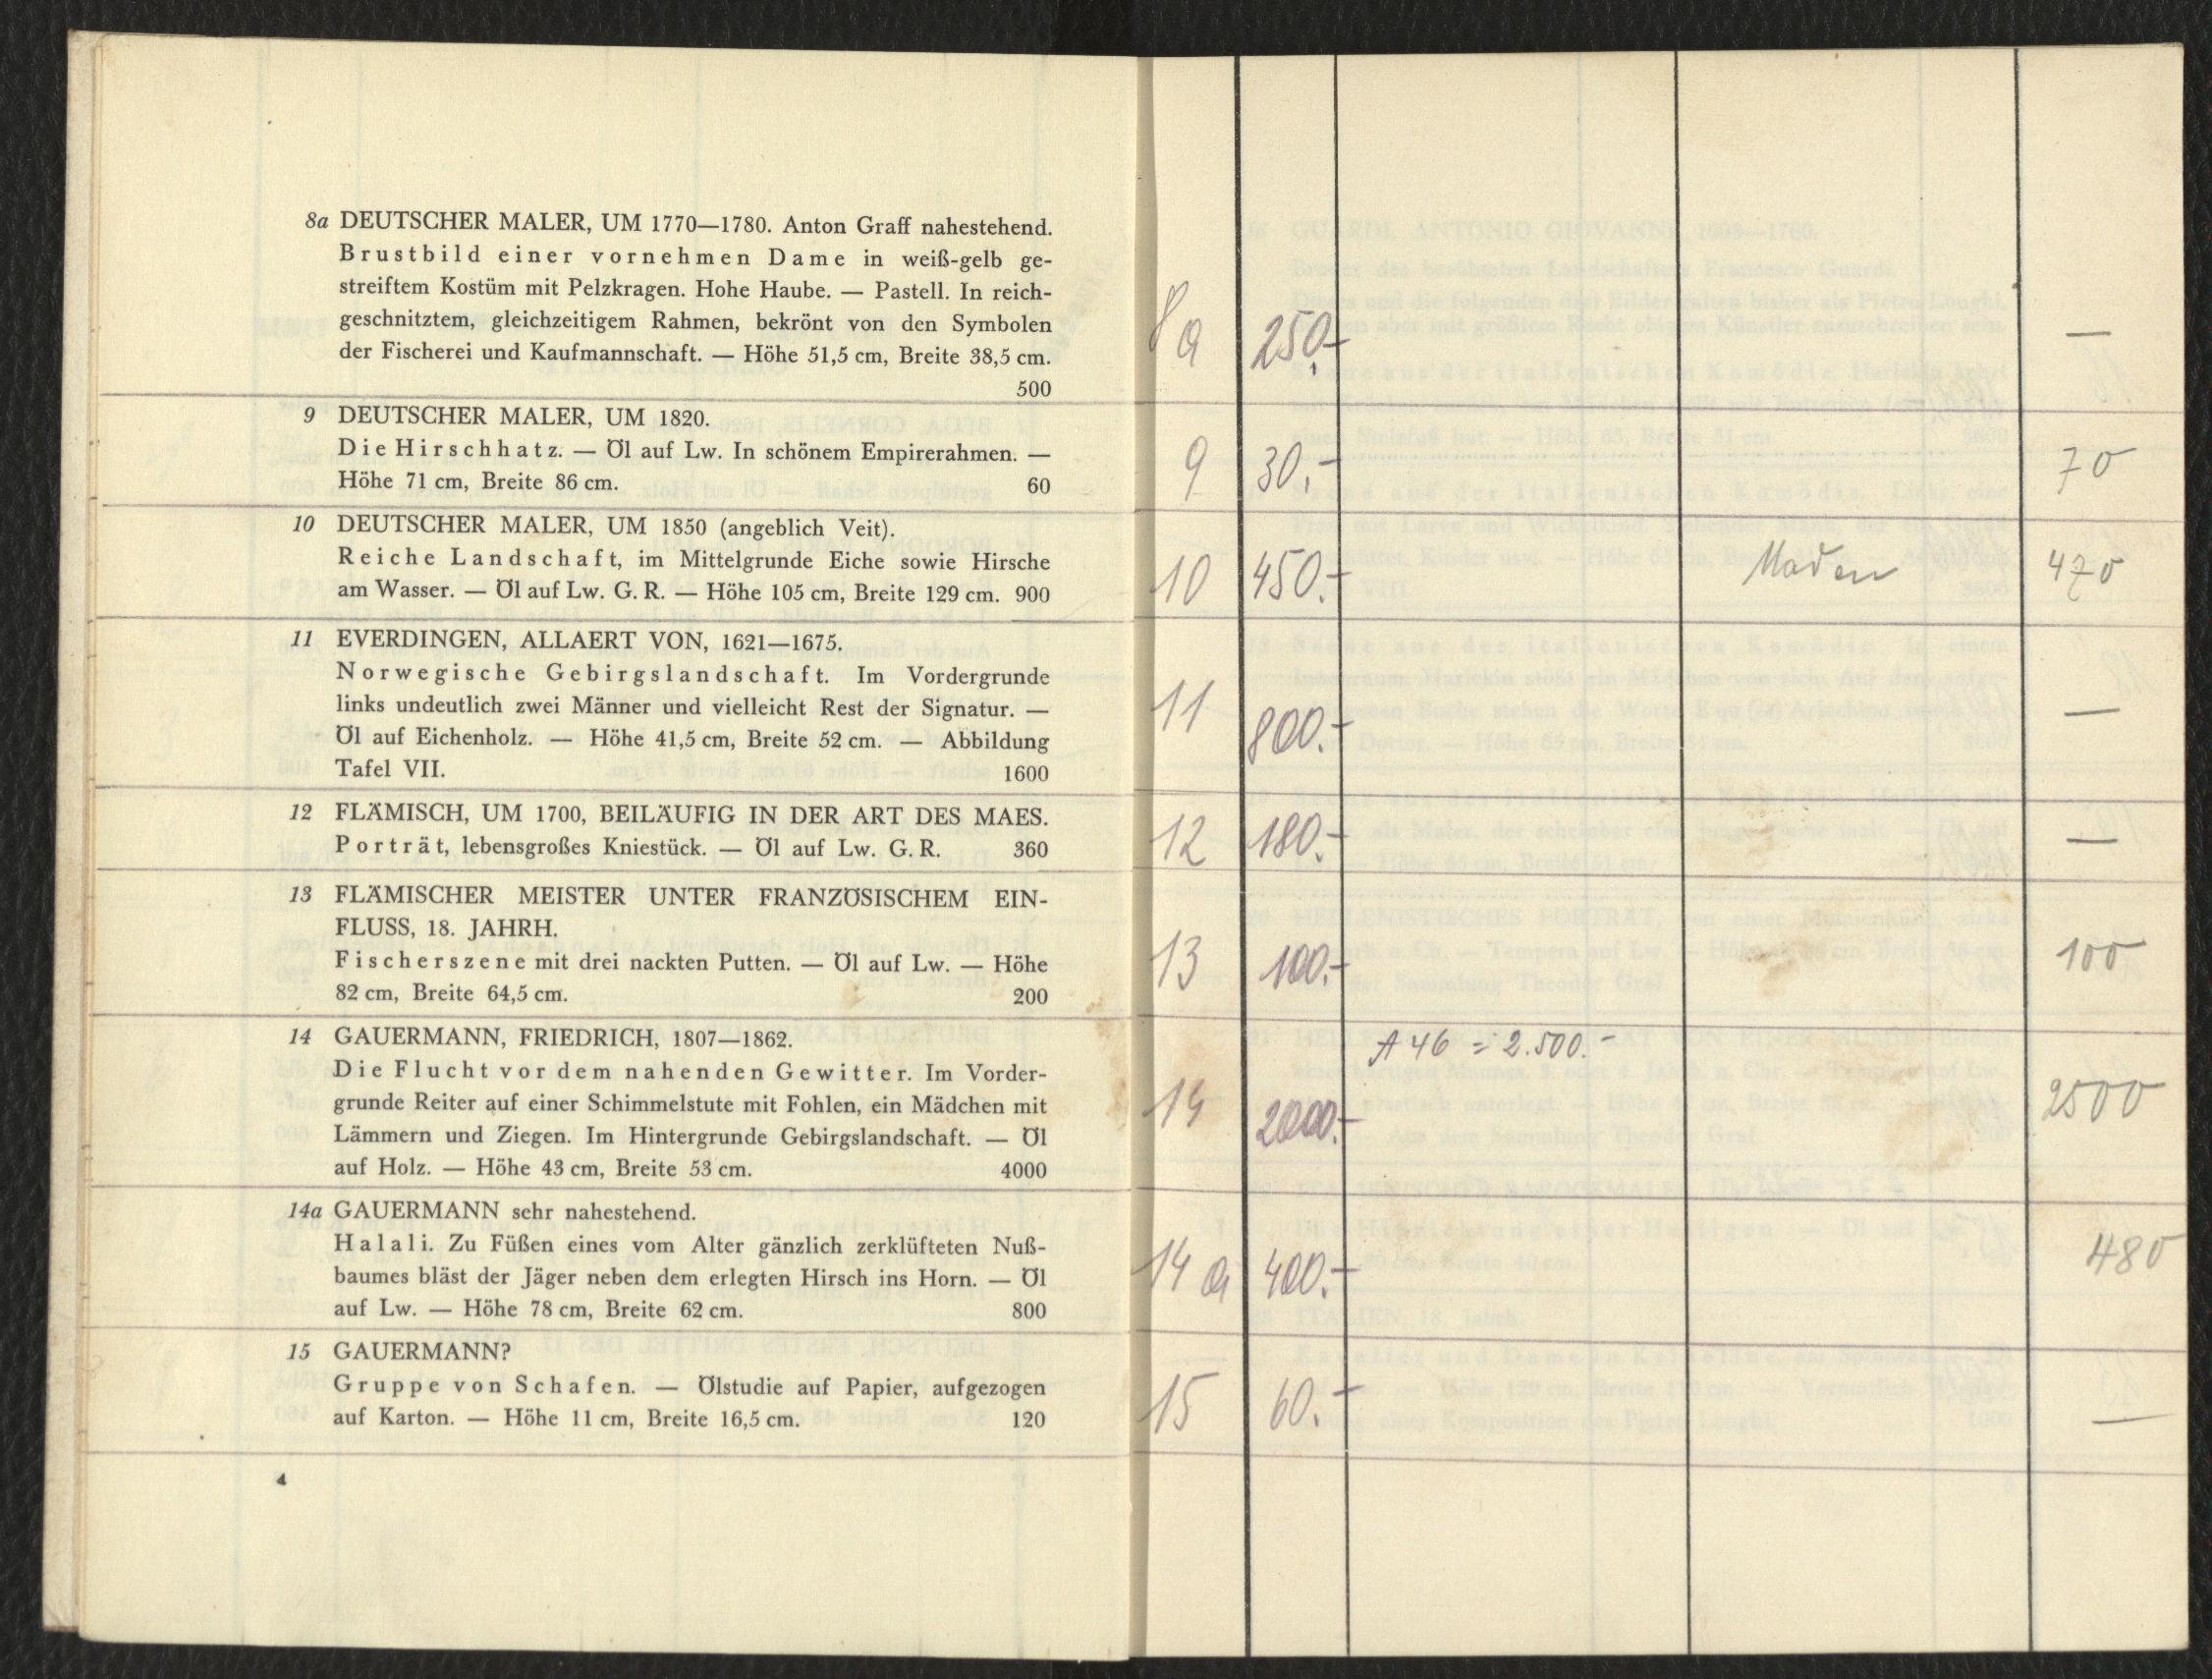 8a DEUTSCHER MALER, UM 1770—1780. Anton Graff nahestehend.
Brustbild einer vornehmen Dame in weiß-gelb ge-
streiftem Kostüm mit Pelzkragen. Hohe Haube. — Pastell. In reich-
geschnitztem, gleichzeitigem Rahmen, bekrönt von den Symbolen
der Fischerei und Kaufmannschaft. — Höhe 51,5 cm, Breite 38,5 cm.
500
9 DEUTSCHER MALER, UM 1820.
Die Hirschhatz. — Öl auf Lw. In schönem Empirerahmen. —
Höhe 71 cm, Breite 86 cm. 60
10 DEUTSCHER MALER, UM 1850 (angeblich Veit).
Reiche Landschaft, im Mittelgrunde Eiche sowie Hirsche
am Wasser. — Öl auf Lw. G. R. — Höhe 105 cm, Breite 129 cm. 900
11 EVERDINGEN, ALLAERT VON, 1621—1675.
Norwegische Gebirgslandschaft. Im Vordergrunde
links undeutlich zwei Männer und vielleicht Rest der Signatur. —
Öl auf Eichenholz. — Höhe 41,5 cm, Breite 52 cm. — Abbildung
Tafel VII. 1600
12 FLÄMISCH, UM 1700, BEILÄUFIG IN DER ART DES MAES.
Porträt, lebensgroßes Kniestück. — Öl auf Lw. G. R. 360
13 FLÄMISCHER MEISTER UNTER FRANZÖSISCHEM EIN-
FLUSS, 18. JAHRH.
Fischerszene mit drei nackten Putten. — Öl auf Lw. — Höhe
82 cm, Breite 64,5 cm. 200
14 GAUERMANN, FRIEDRICH, 1807—1862.
Die Flucht vor dem nahenden Gewitter. Im Vorder-
grunde Reiter auf einer Schimmelstute mit Fohlen, ein Mädchen mit
Lämmern und Ziegen. Im Hintergrunde Gebirgslandschaft. — Öl
auf Holz. — Höhe 43 cm, Breite 53 cm. 4000
14a GAUERMANN sehr nahestehend.
Halali. Zu Füßen eines vom Alter gänzlich zerklüfteten Nuß-
baumes bläst der Jäger neben dem erlegten Hirsch ins Horn. — Öl
auf Lw. — Höhe 78 cm, Breite 62 cm. 800
15 GAUERMANN?
Gruppe von Schafen. — Ölstudie auf Papier, aufgezogen
auf Karton. — Höhe 11 cm, Breite 16,5 cm. 120
4
8a 250.- —
9 30,- 70
10 450.- 470
11 800.- —
12 180.- —
13 100.- 100
A 46 = 2.500.-
14 2000.- 2500
14a 400.- 480
15 60.- —